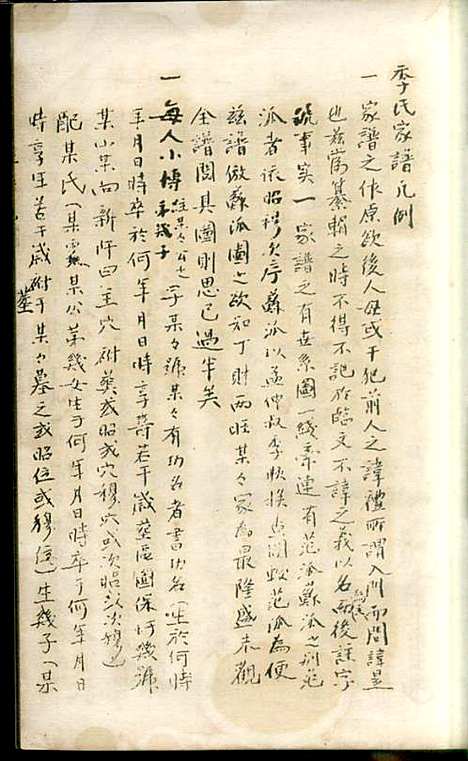 季氏家譜凡例
一 家譜之作原欲後人毋或干犯前人之諱禮所謂入門而問諱是
也茲當纂輯之時不得不記於臨文不諱之義以名而後註字
號事實一家譜之有世系圖一綫牽連有范派蘇派之別范
派者依昭穆次序蘇派以孟仲叔季軼挨點閱較范派為便
茲譜倣蘇派圖之欲知丁財兩旺某々家為最隆盛未觀
全譜閱其圖則思已過半矣
一 每人小傳註某々公之第幾子字某々號某々有功名者書功名生於何時
年月日時卒於何年月日時享壽若干歲葬區圖保何幾號
某山某向新阡曰主穴附葬或昭或穴穆穴或次昭或次穆
配某氏某處某公第幾女生于何年月日時卒于何年月日
時享年若干歲附于某々墓之或昭位或穆位生幾子某
葬